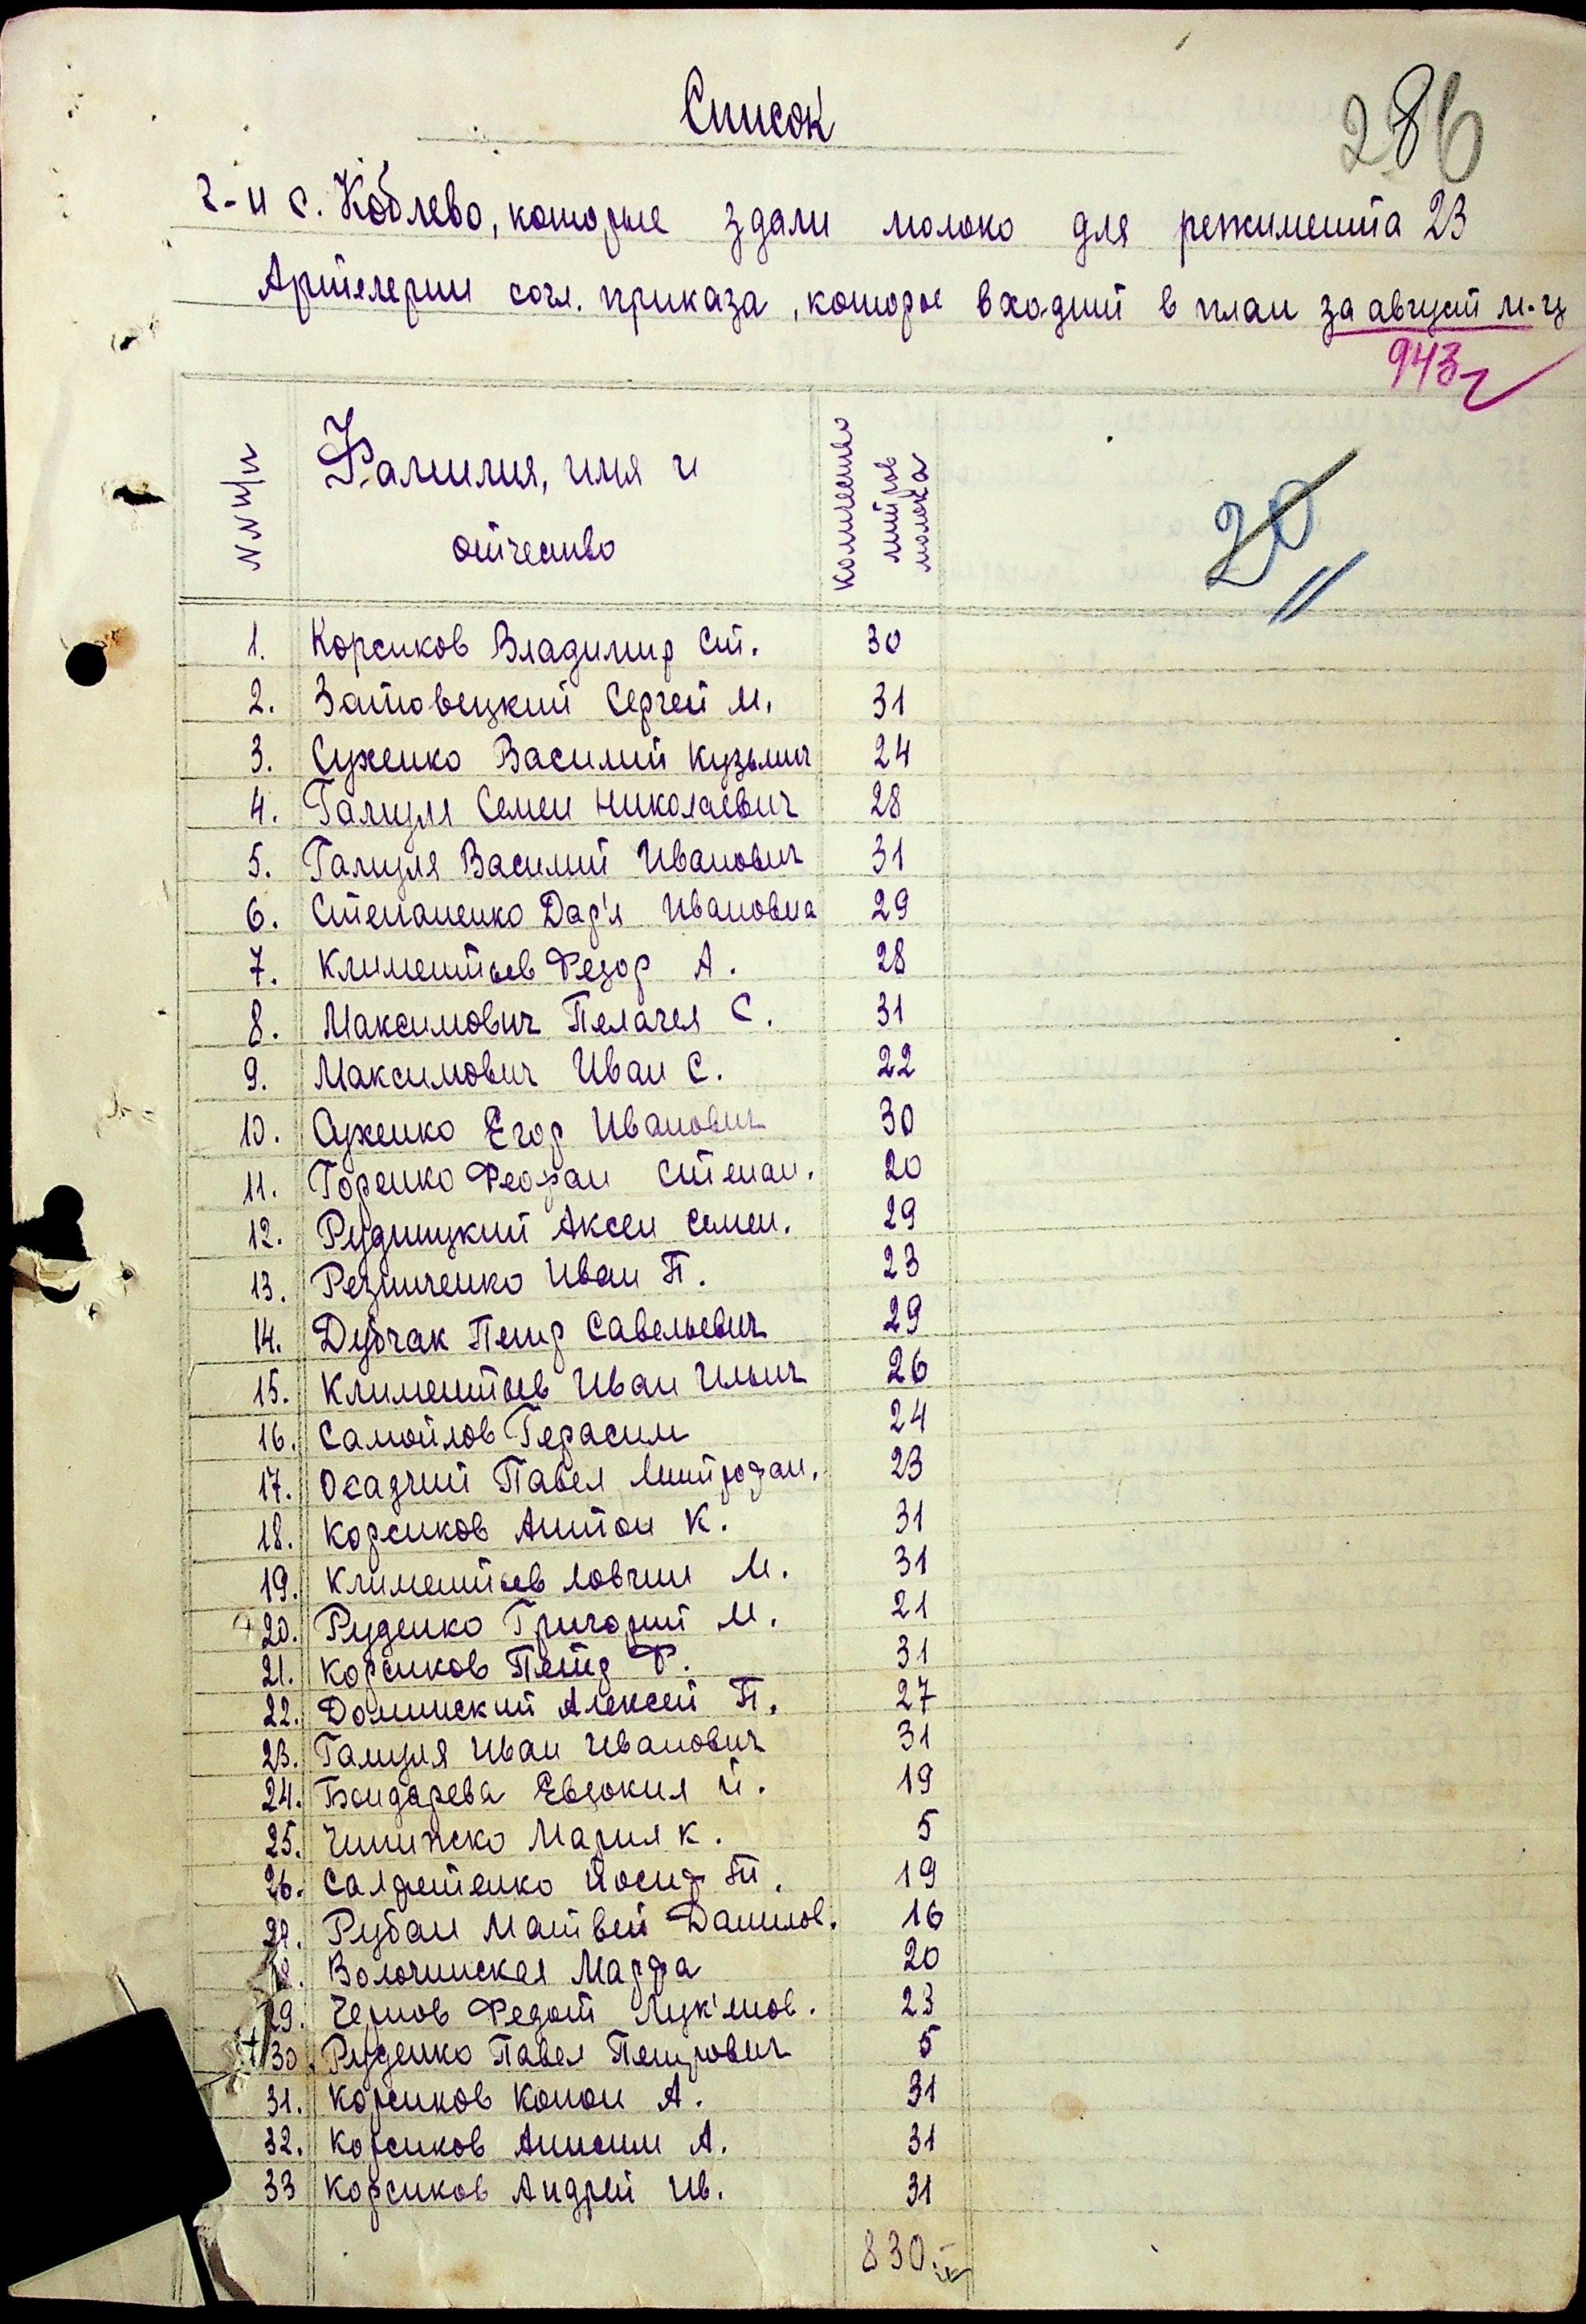 Список
286
г-н с. Коблево, которые здали молоко для режимента 23
Артелерии согл. приказа, которое входит в план за август м-ц
943 г
N N п/п
Фамилия, имя и отчество
количество литров молока
20
1. Корсиков Владимир Ст. 30
2. Затовецкий Сергей М. 31
3. Суженко Василий Кузьмич 24
4. Галицля Семен Николаевич 28
5. Галицля Василий Иванович 31
6. Степаненко Дар'я Ивановна 29
7. Климентьев Федор А. 28
8. Максимович Пелагея С. 31
9. Максимович Иван С. 22
10. Суженко Егор Иванович 30
11. Горенко Феофан Степан. 20
12. Рудницкий Аксен Семен. 29
13. Резниченко Иван П. 23
14. Дубчак Петр Савельевич 29
15. Климентьев Иван Ильич 26
16. Самойлов Герасим 24
17. Осадчий Павел Митрофан. 23
18. Корсиков Антон К. 31
19. Климентьев Ловгин М. 31
20. Руденко Григорий М. 21
21. Корсиков Петр Ф. 31
22. Долинский Алексей П. 27
23. Галицля Иван Иванович 31
24. Бондарева Евдокия И. 19
25. Мария К. 5
26. Йосиф Т. 19
27. Рубан Матвей Данилов. 16
28. Волочинская Марфа 20
29. Чернов Федот Лук'янов. 23
30. Руденко Павел Петрович 5
31. Корсиков Конон А. 31
32. Корсиков Анисим А. 31
33 Корсиков Андрей Ив. 31
830